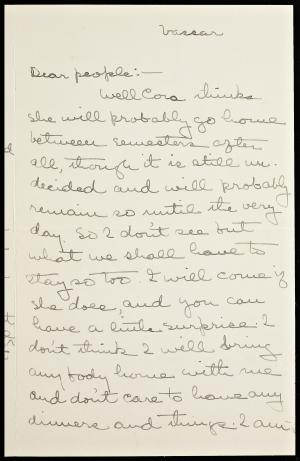 Vassar
Dear people:—
Well Cora thinks
she will probably go home
between semesters after
all, though it is still un-
decided and will probably
remain so until the very
day. So I don't see but
what we shall have to
stay so too. I will come if
she does, and you can
have a little surprise. I
don't think I will bring
any body home with me
and don't care to have any
dinners and things. I am